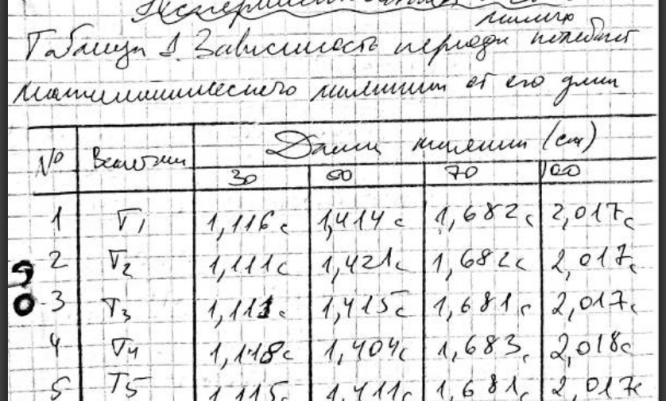 Экспериментальная
Таблица 1. Зависимость периода колебаний
математического маятника от его длины
№ Величины Длина маятника (см)
30 60 70 100
1 T1 1,116с 1,414с 1,682с 2,017с
2 T2 1,111с 1,421с 1,682с 2,017с
3 T3 1,111с 1,415с 1,681с 2,017с
4 T4 1,118с 1,404с 1,683с 2,018с
5 T5 1,115с 1,411с 1,681с 2,017с